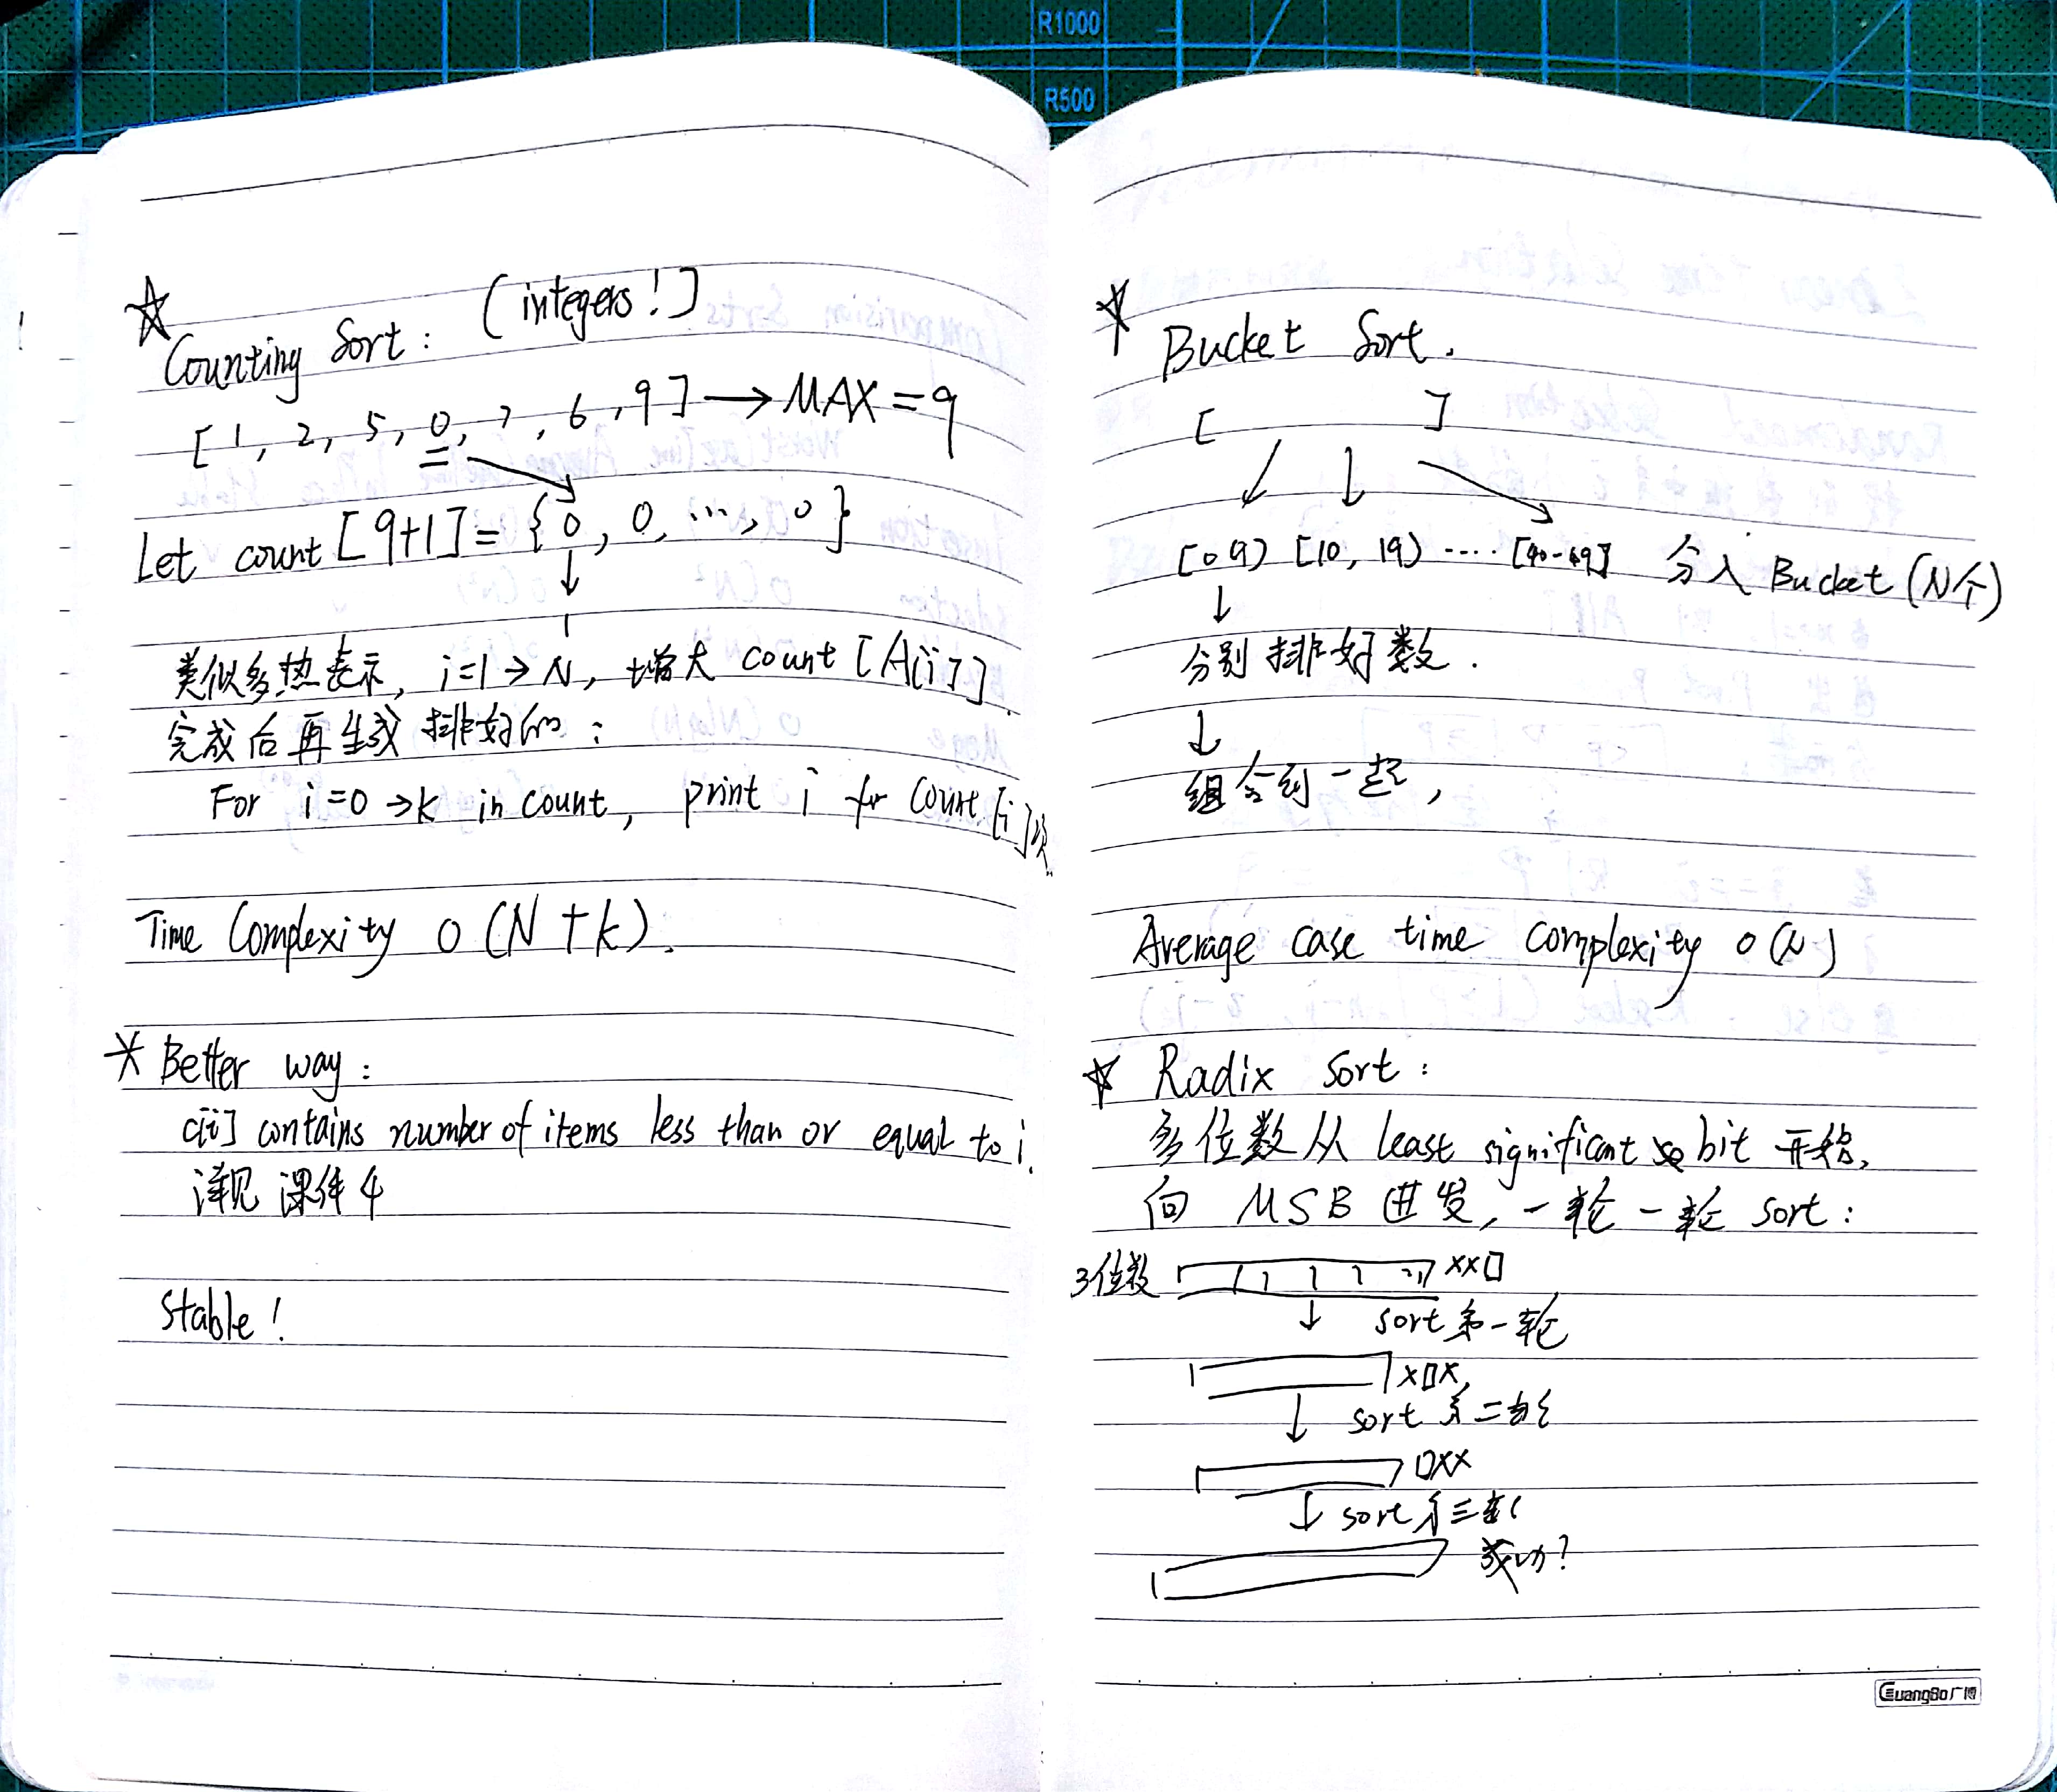 R1000
R500
☆ Counting Sort: (integers!)
[1, 2, 5, 0, 7, 6, 9] → MAX = 9
Let count [9+1] = {0, 0, ..., 0}
↓
1
类似多热表示, i=1→N, 增大 count [A[i]].
完成后再生成排好的:
For i=0→k in count, print i for count[i]次
Time Complexity O(N+k).
* Better way:
c[i] contains number of items less than or equal to i.
详见课件4
Stable!
☆ Bucket Sort.
[ ]
[0 9) [10, 19) .... [40-49] 分入 Bucket (N个)
↓
分别排好数.
↓
组合到一起,
Average case time complexity O(N)
☆ Radix Sort:
多位数从 least significant bit 开始,
向 MSB 进发, 一轮一轮 sort:
3位数 xx□
↓ sort 第一轮
x□x,
↓ sort 第二轮
□xx
↓ sort 第三轮
成功?
GuangBo广博